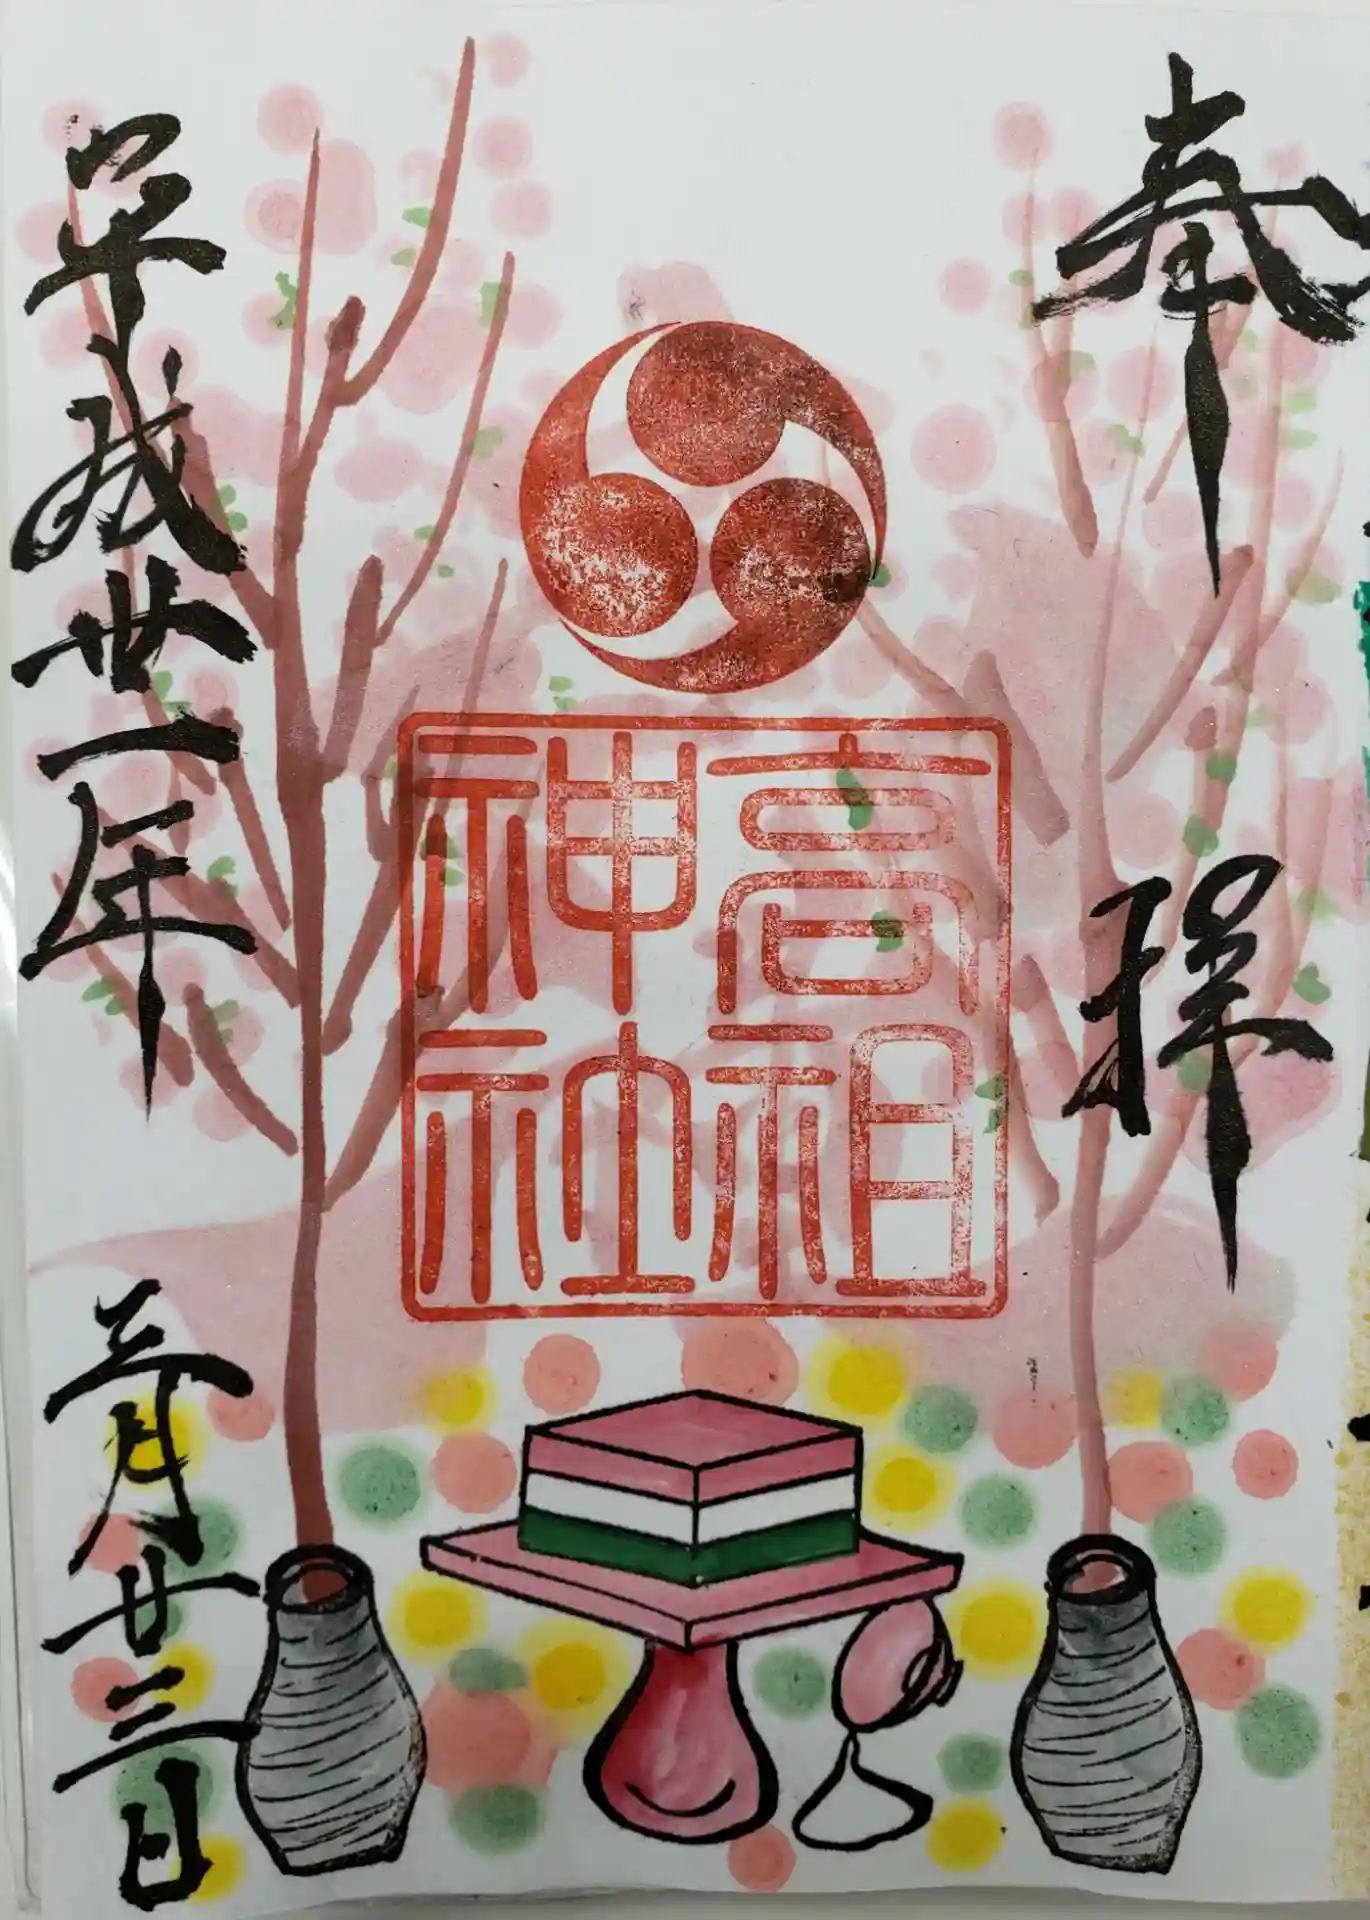 奉拝
高祖
神社
平成廿一年
三月廿三日